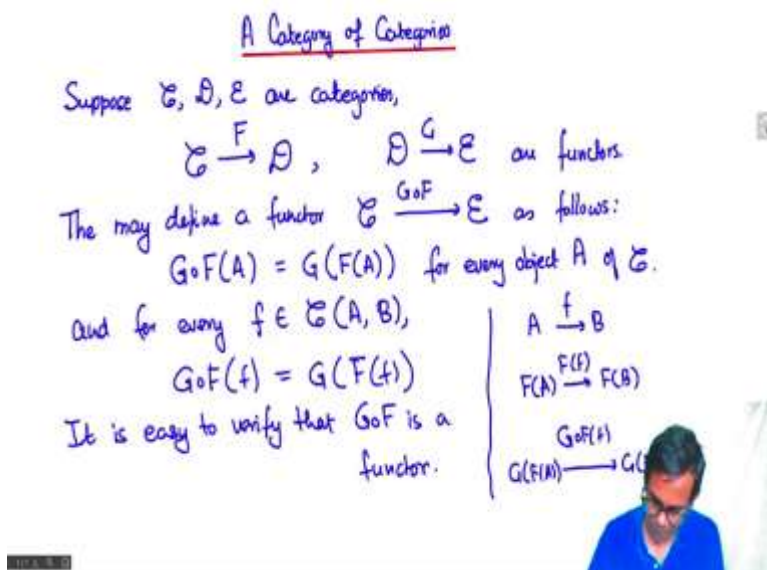 A Category of Categories
Suppose 𝒞, 𝒟, ℰ are categories,
𝒞 —F→ 𝒟, 𝒟 —G→ ℰ are functors.
The may define a functor 𝒞 —G∘F→ ℰ as follows:
G∘F(A) = G(F(A)) for every object A of 𝒞.
and for every f ∈ 𝒞(A, B),
G∘F(f) = G(F(f))
It is easy to verify that G∘F is a
functor.
A —f→ B
F(A) —F(f)→ F(B)
G∘F(f)
G(F(A)) ⟶ G(